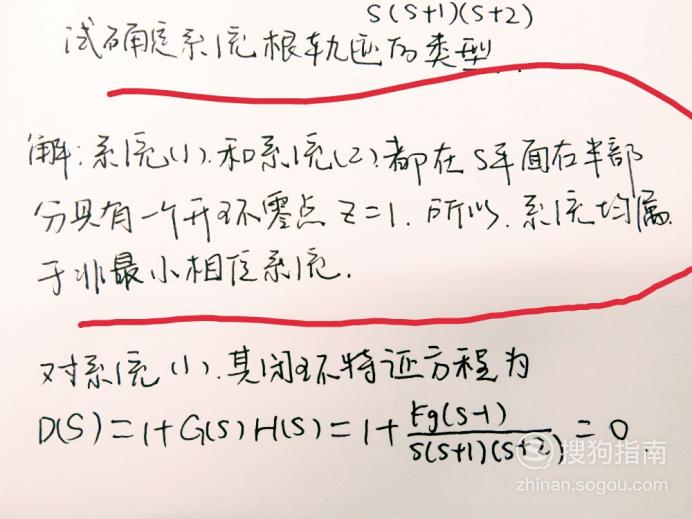 S(S+1)(S+2)
试确定系统根轨迹的类型
解:系统(1).和系统(2).都在S平面右半部
分具有一个开环零点Z=1.所以.系统均属
于非最小相位系统.
对系统(1).其闭环特证方程为
D(S)=1+G(S)H(S)=1+Kg(S-1)/S(S+1)(S+2)=0.
搜狗指南
zhinan.sogou.com